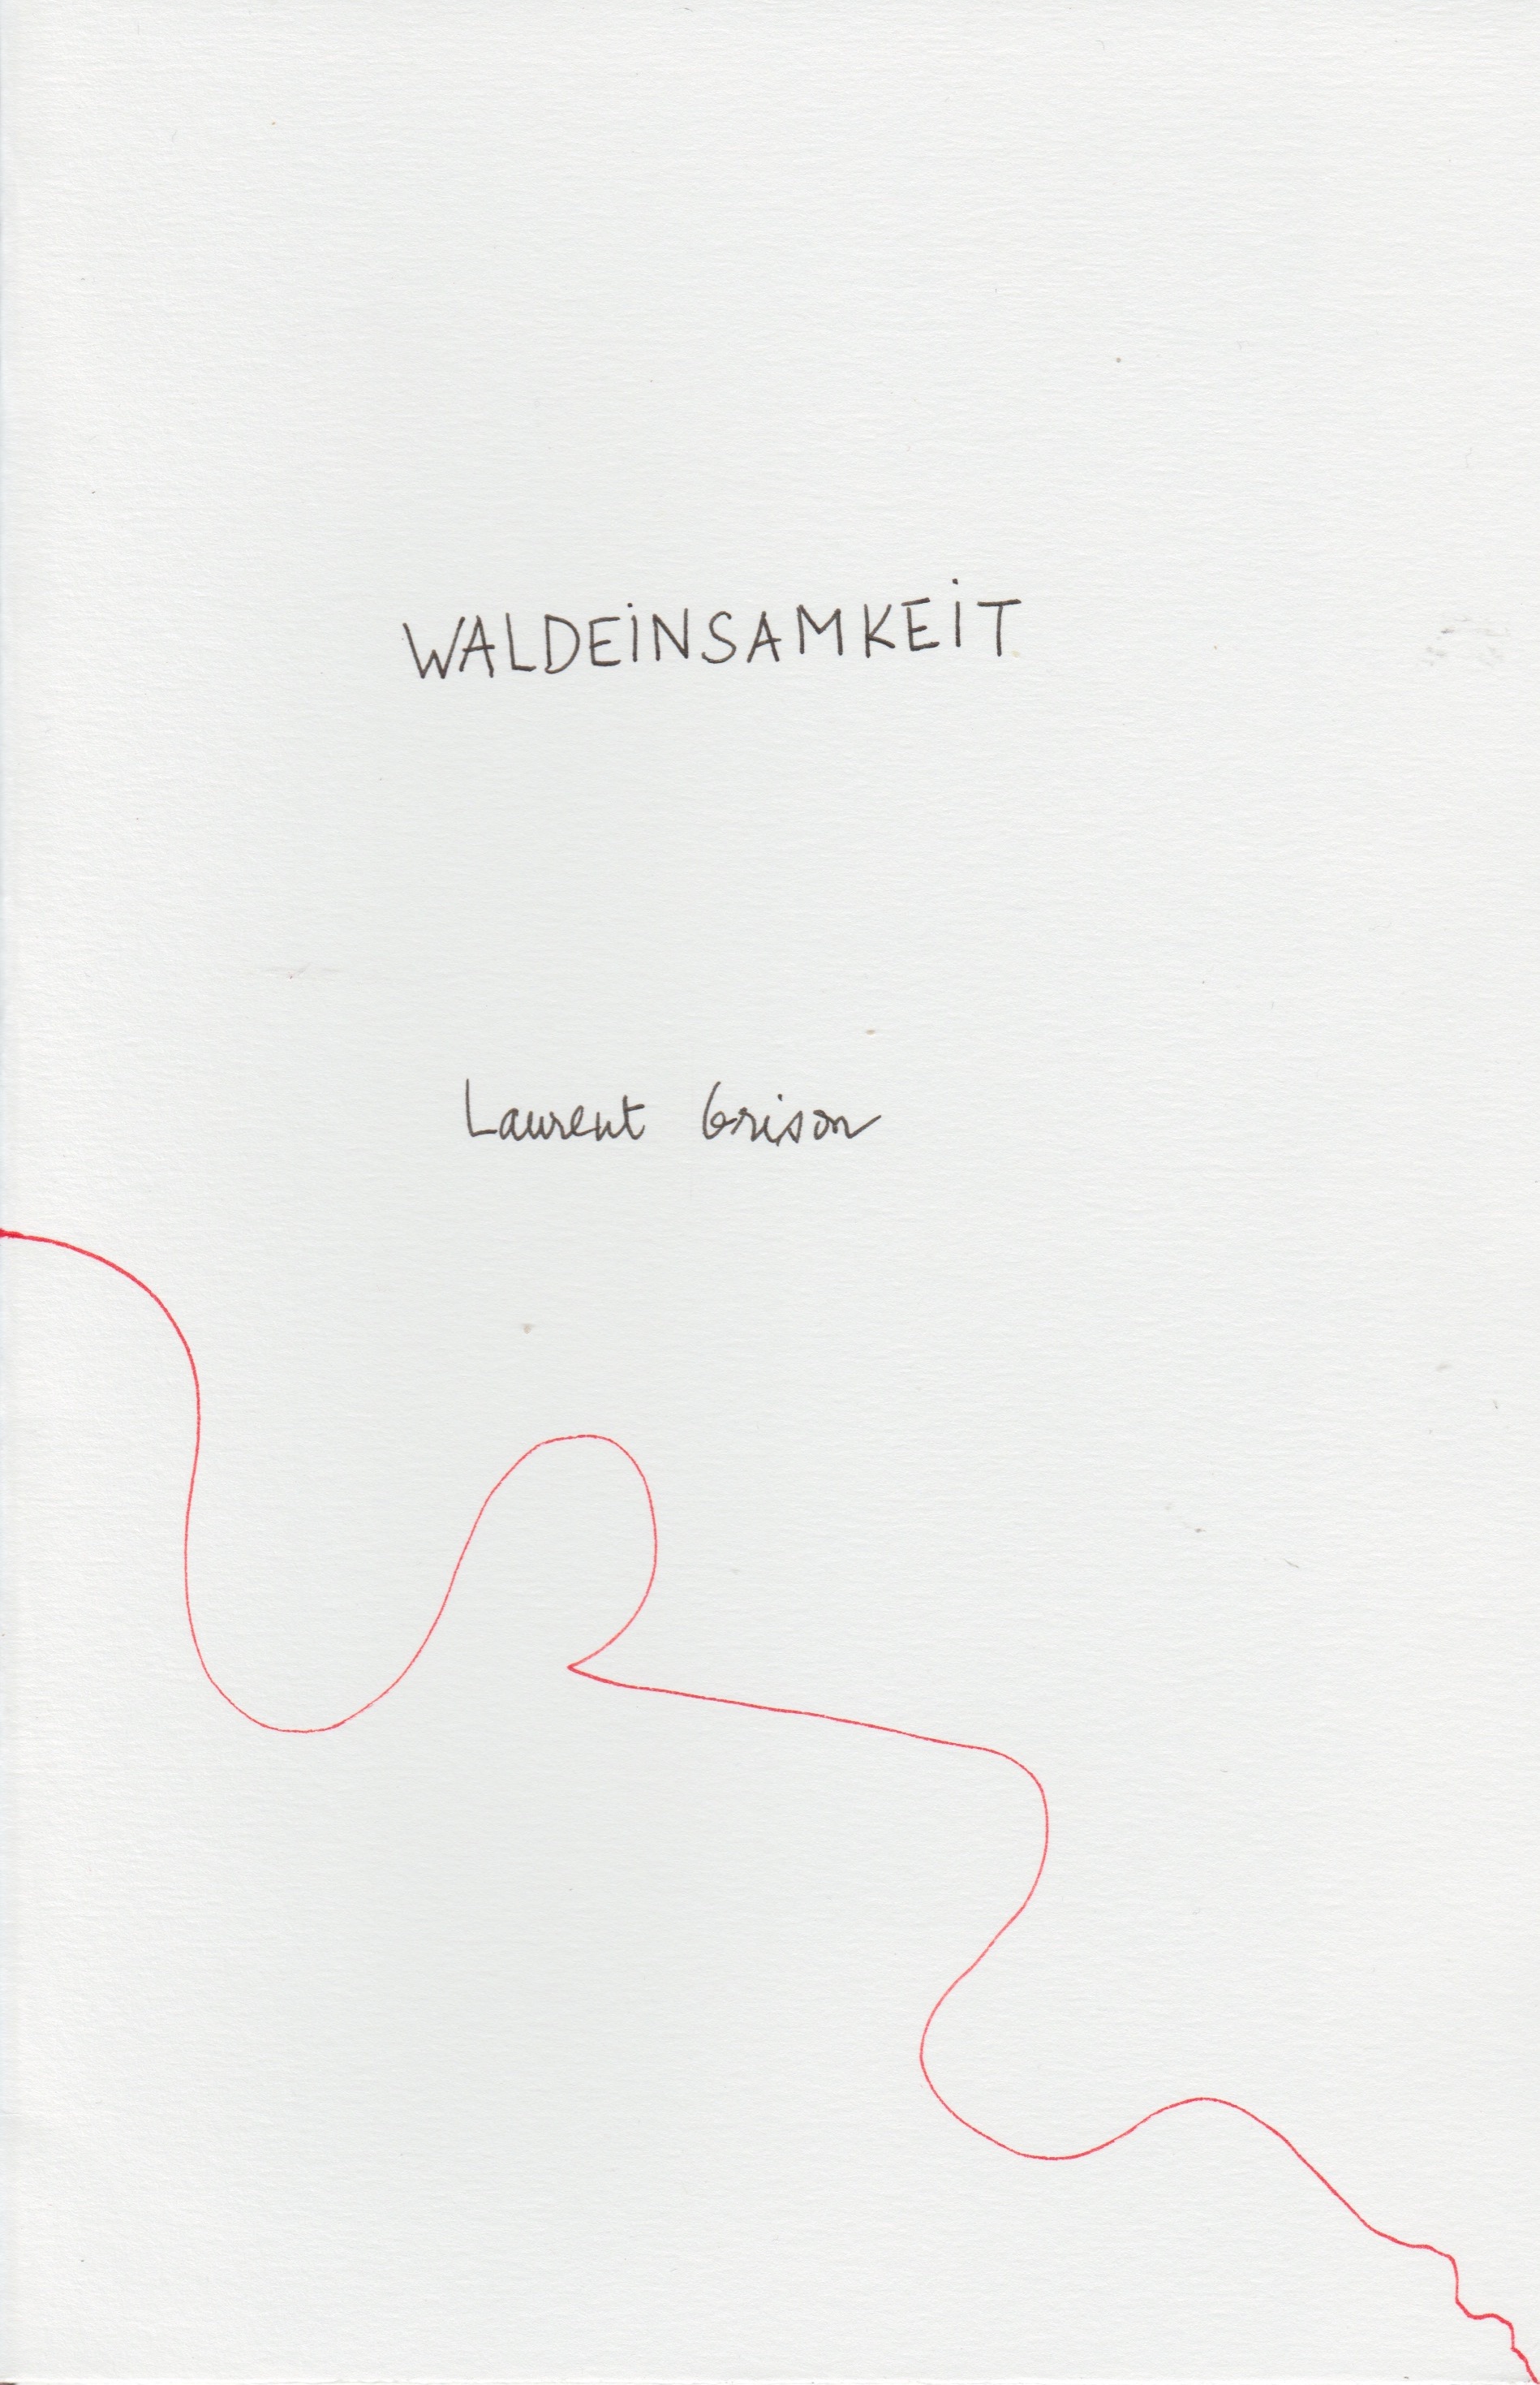 WALDEINSAMKEIT
Laurent Grison